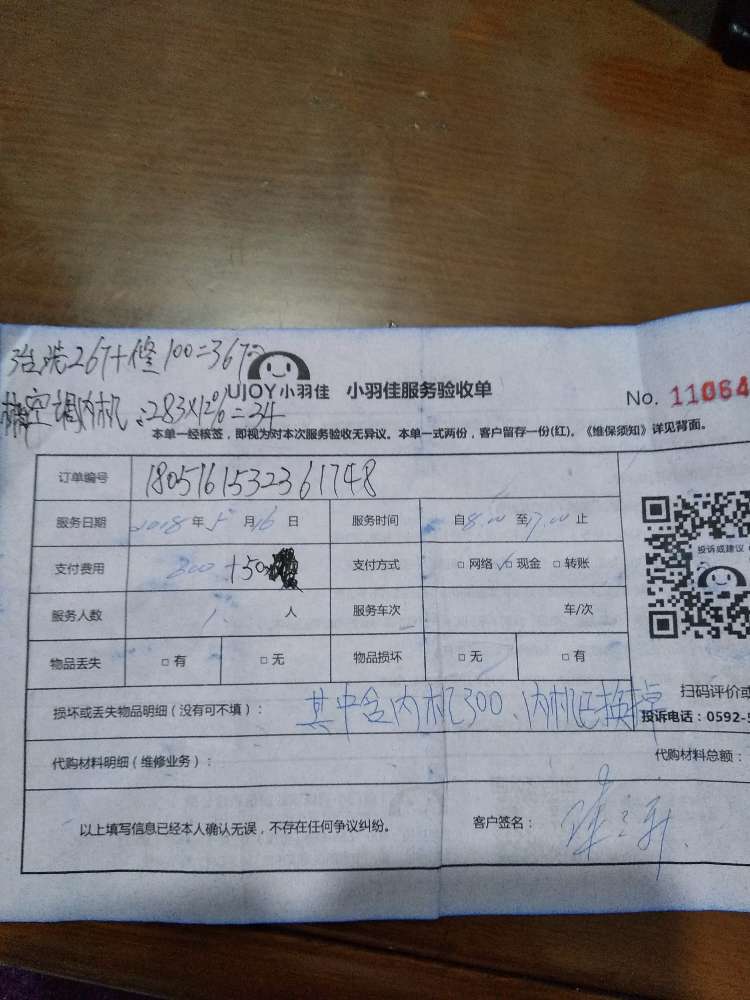 治洗267+修100=367
空调内机:283×12%=34
UJOY小羽佳 小羽佳服务验收单 No. 11064
本单一经核签，即视为对本次服务验收无异议。本单一式两份，客户留存一份(红)。《维保须知》详见背面。
订单编号 1805161532361748
服务日期 2018年5月16日 服务时间 自8.00至17.00止
支付费用 300+50 支付方式 □网络 ☑现金 □转账
服务人数 1人 服务车次 车/次
物品丢失 □有 □无 物品损坏 □无 □有
投诉或建议
扫码评价或
损坏或丢失物品明细（没有可不填）： 其中含内机300、内机已换掉
投诉电话：0592-5
代购材料明细（维修业务）： 代购材料总额：
以上填写信息已经本人确认无误，不存在任何争议纠纷。 客户签名：